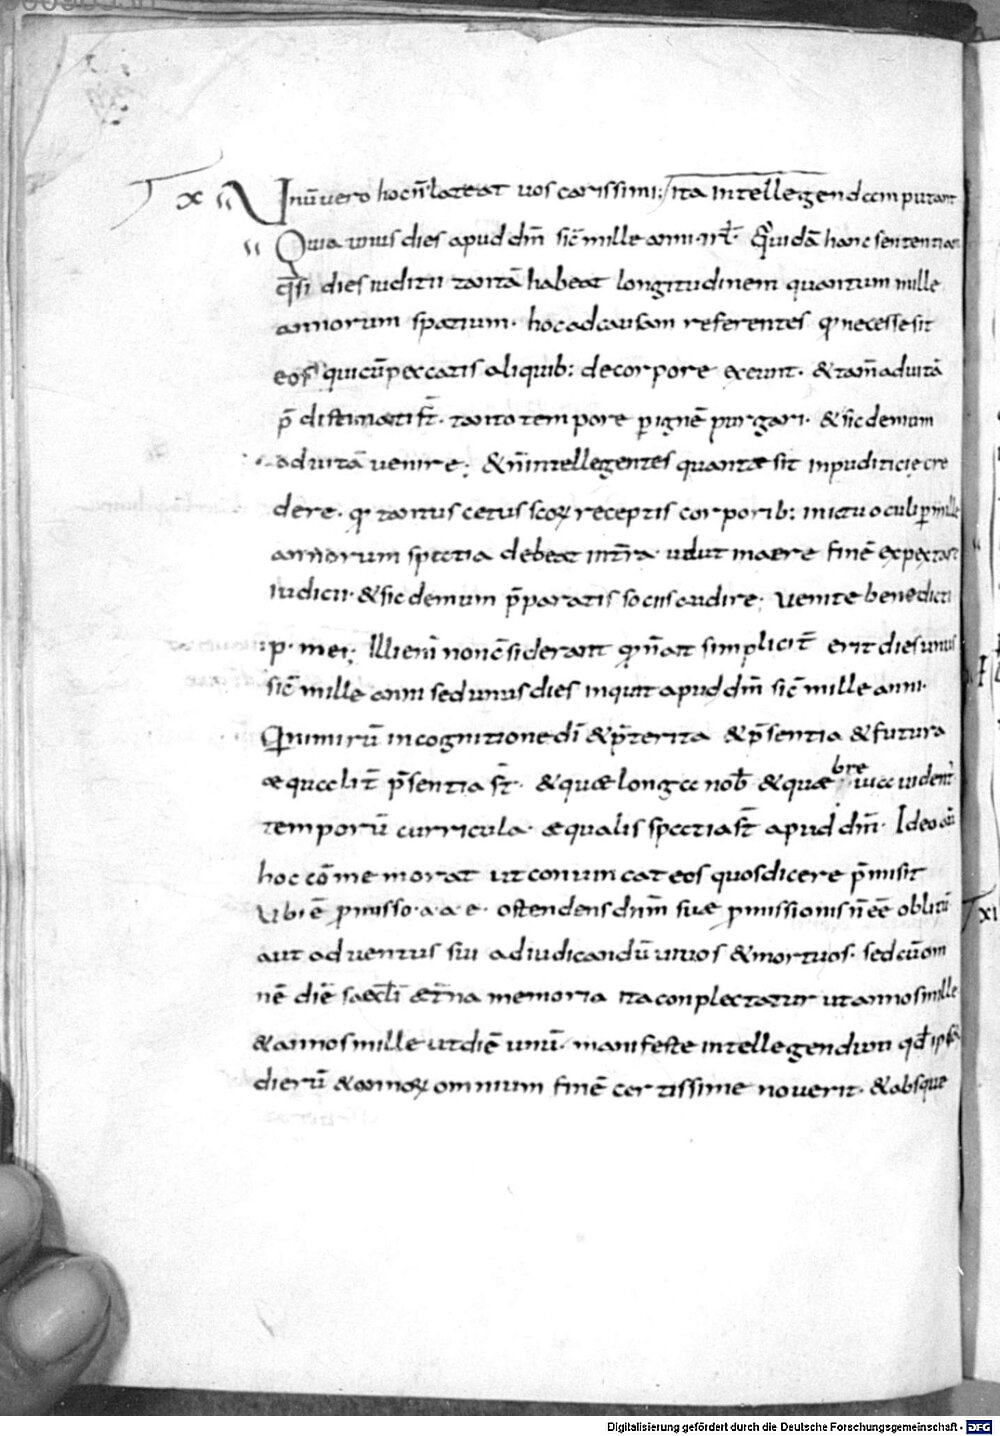 x Unū vero hoc n̄ lateat vos carissimi; Ita intellegendam putant
Quia unus dies apud dm̄ sic̄ mille anni · Quidā hanc sententiam
q̄si dies iuditii tantā habeat longitudinem quantum mille
annorum spatium · hoc ad causam referentes qđ necesse sit
eos qui cū peccatis aliquib: de corpore exeunt · & tam̄ ad vitā
p̄destinati st̄ · tanto tempore p ignē purgari · & sic demum
ad vitā venire; & n̄ intellegentes quantæ sit inpuditicię cre
dere · qđ tantus cetus scōꝝ receptis corporib: in ictu oculi p mille
annorum spatia debeat intra · velut maere finē expectare
iudicii · & sic demum p̄paratis sociis audire; Venite benedicti
p · mei; Illi enī non c̄siderant qđ n̄ ait simplicit̄ erit dies unus
sic̄ mille anni sed unus dies inquit apud dm̄ sic̄ mille anni ·
Quia nimirū in cognitione dī & p̄terita & p̄sentia & futura
æqualit̄ p̄sentia st̄ · & quæ longa nob̄ & quæ brevia vident̄
temporū curricula · æqualis spatia st̄ apud dm̄ · Ideo aū
hoc cōmemorat ut convincat eos quos dicere p̄misit
Ubi ē promisso · a · a · e · ostendens dnm̄ suę promissionis n̄ eē oblitū
aut adventus sui ad iudicandū vivos & mortuos · sed cū om
nē diē saecl̄i æt̄na memoria ita conplectatur ut annos mille
& annos mille ut diē unū · manifeste intellegendum qđ ipse
dierū & annoꝝ omnium finē certissime noverit · & absque
xi